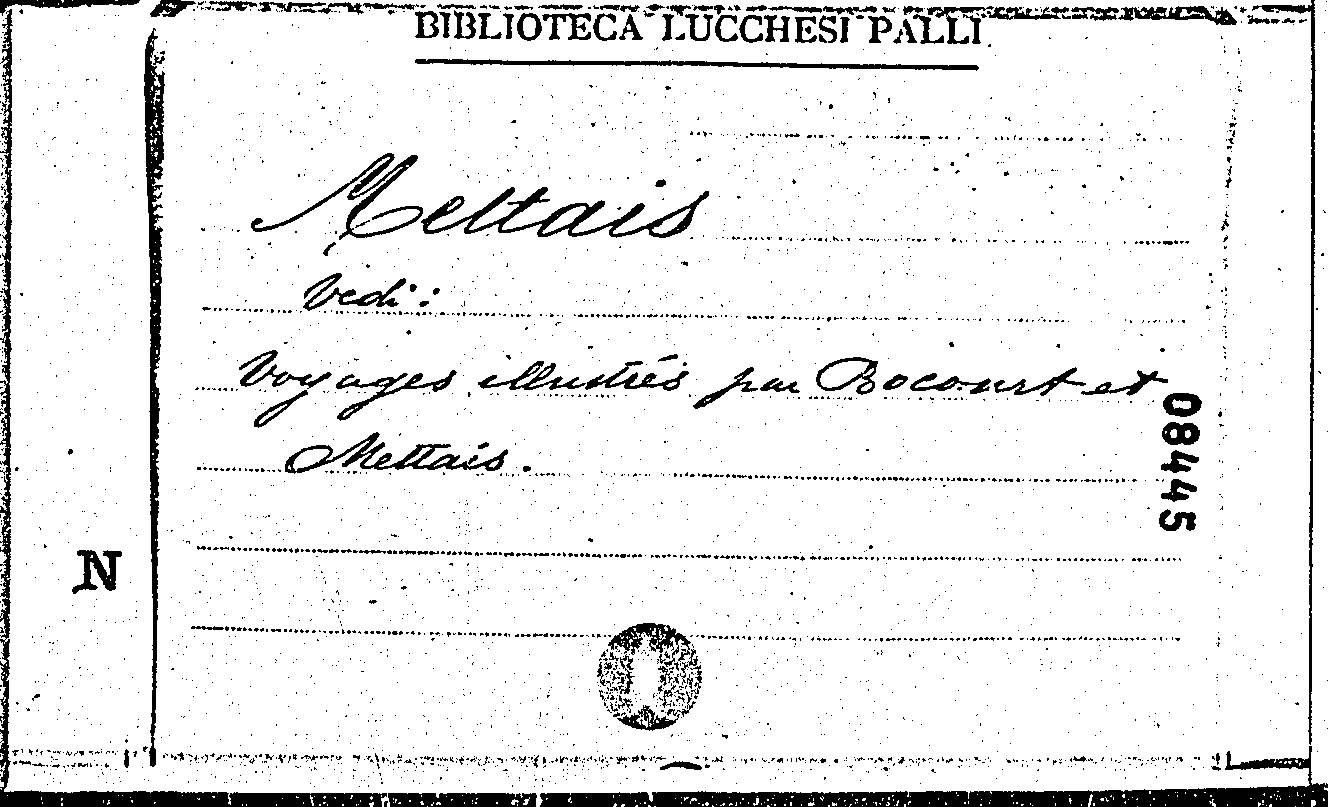 BIBLIOTECA LUCCHESI PALLI
Mettais
Vedi:
Voyages illustrés par Bocourt et
Mettais.
08445
N